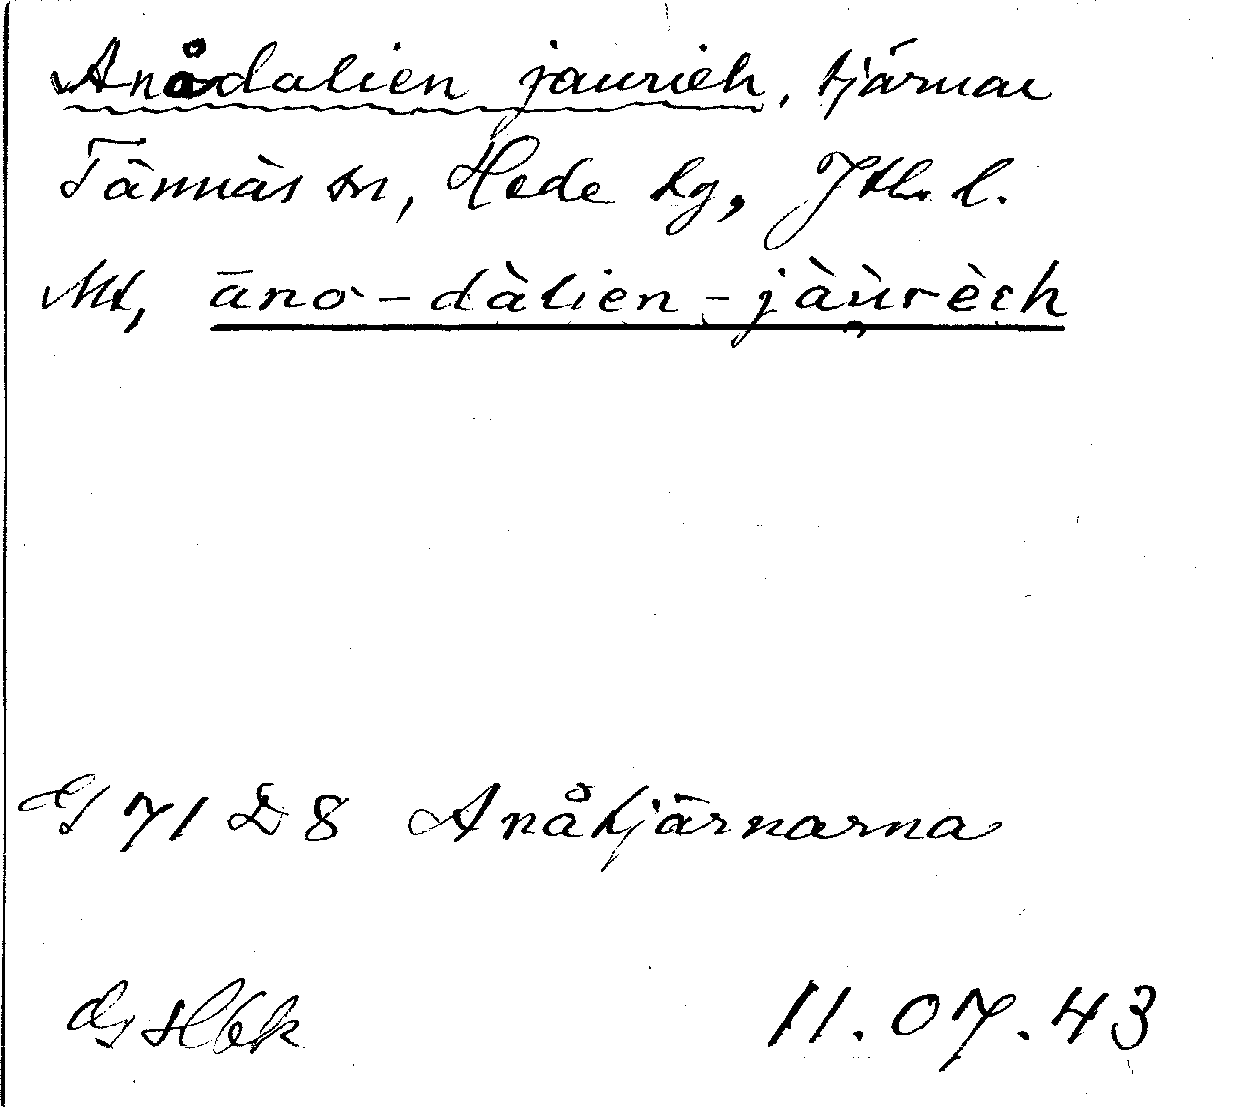 Anådalien jaurieh, tjärnar
Tännäs sn, Hede tg, Jtl. l.
Mt, āno-dàlien-jàu̯rèch
GJ 71 D 8 Anåtjärnarna
11.07.43